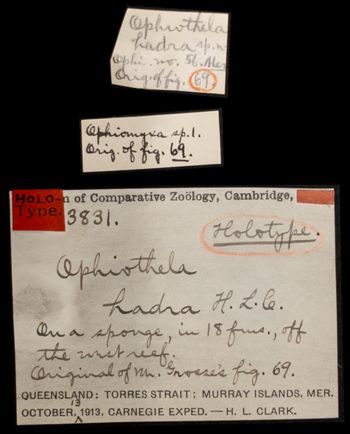 Ophiothela
hadra sp. n.
Ophi. no. 56. Mer
Orig. of fig. 69
Ophiomyxa sp. 1.
Orig. of fig. 69.
HOLO-
Type.
m of Comparative Zoölogy, Cambridge,
3831.
Holotype.
Ophiothela
hadra H. L. C.
On a sponge, in 18 fms., off
the west reef.
Original of Mr. Grosse's fig. 69.
QUEENSLAND: TORRES STRAIT: MURRAY ISLANDS, MER.
13
OCTOBER, 1913, CARNEGIE EXPED. — H. L. CLARK.